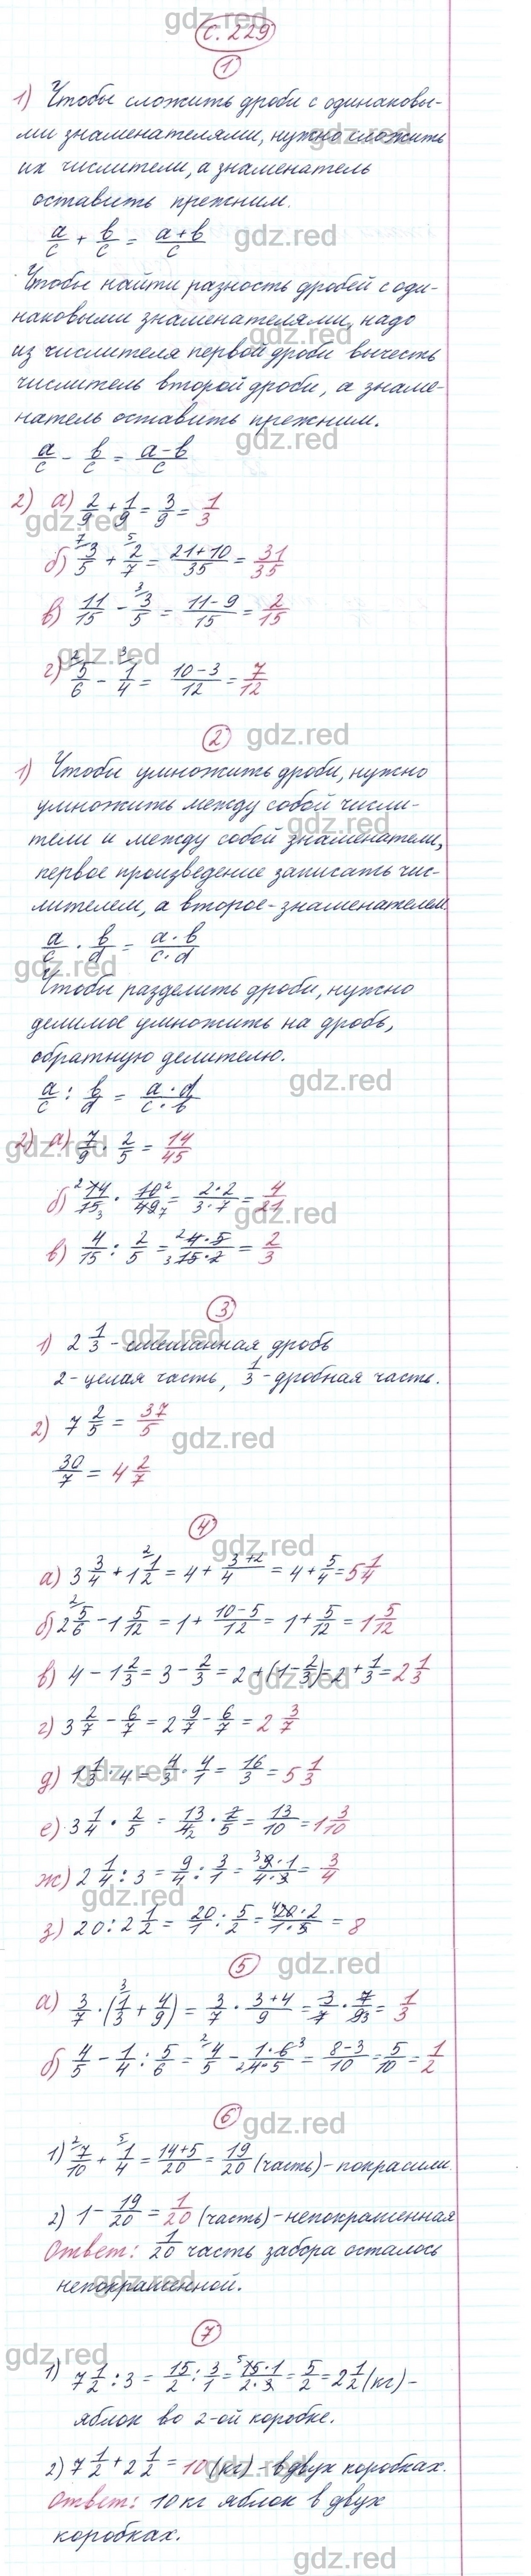 с. 229
1
1) Чтобы сложить дроби с одинаковы-
ми знаменателями, нужно сложить
их числители, а знаменатель
оставить прежним.
a/c + b/c = a+b/c
Чтобы найти разность дробей с оди-
наковыми знаменателями, надо
из числителя первой дроби вычесть
числитель второй дроби, а знаме-
натель оставить прежним.
a/c - b/c = a-b/c
2) а) 2/9 + 1/9 = 3/9 = 1/3
б) 3/5 + 2/7 = 21+10/35 = 31/35
в) 11/15 - 3/5 = 11-9/15 = 2/15
г) 5/6 - 1/4 = 10-3/12 = 7/12
2
1) Чтобы умножить дроби, нужно
умножить между собой числи-
тели и между собой знаменатели,
первое произведение записать чис-
лителем, а второе - знаменателем.
a/c · b/d = a·b/c·d
Чтобы разделить дроби, нужно
делимое умножить на дробь,
обратную делителю.
a/c : b/d = a·d/c·b
2) а) 7/9 · 2/5 = 14/45
б) 14/15 · 10/49 = 2·2/3·7 = 4/21
в) 4/15 : 2/5 = 4·5/15·2 = 2/3
3
1) 2 1/3 - смешанная дробь
2 - целая часть, 1/3 - дробная часть.
2) 7 2/5 = 37/5
30/7 = 4 2/7
4
а) 3 3/4 + 1 1/2 = 4 + 3+2/4 = 4 + 5/4 = 5 1/4
б) 2 5/6 - 1 5/12 = 1 + 10-5/12 = 1 + 5/12 = 1 5/12
в) 4 - 1 2/3 = 3 - 2/3 = 2 + (1 - 2/3) = 2 + 1/3 = 2 1/3
г) 3 2/7 - 6/7 = 2 9/7 - 6/7 = 2 3/7
д) 1 1/3 · 4 = 4/3 · 4/1 = 16/3 = 5 1/3
е) 3 1/4 · 2/5 = 13/4 · 2/5 = 13/10 = 1 3/10
ж) 2 1/4 : 3 = 9/4 : 3/1 = 9·1/4·3 = 3/4
з) 20 : 2 1/2 = 20/1 : 5/2 = 20·2/1·5 = 8
5
а) 3/7 · (1/3 + 4/9) = 3/7 · 3+4/9 = 3/7 · 7/9 = 1/3
б) 4/5 - 1/4 : 5/6 = 4/5 - 1·6/4·5 = 8-3/10 = 5/10 = 1/2
6
1) 7/10 + 1/4 = 14+5/20 = 19/20 (часть) - покрасили.
2) 1 - 19/20 = 1/20 (часть) - непокрашенная
Ответ: 1/20 часть забора осталось
непокрашенной.
7
1) 7 1/2 : 3 = 15/2 : 3/1 = 15·1/2·3 = 5/2 = 2 1/2 (кг) -
яблок во 2-ой коробке.
2) 7 1/2 + 2 1/2 = 10 (кг) - в двух коробках.
Ответ: 10 кг яблок в двух
коробках.
gdz.red